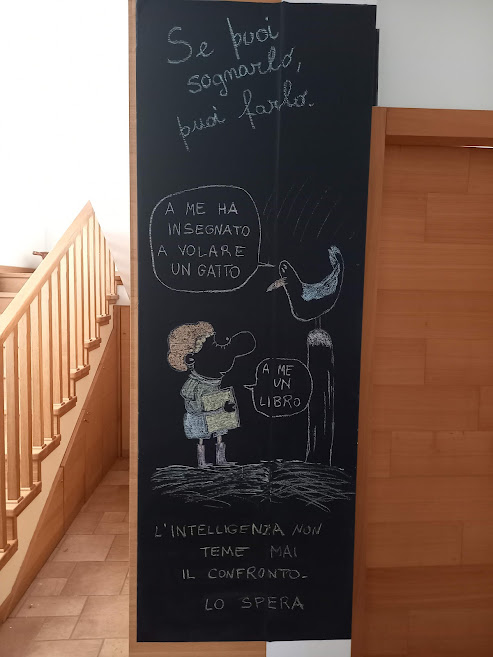 Se puoi
sognarlo,
puoi farlo.
A ME HA
INSEGNATO
A VOLARE
UN GATTO
A ME
UN
LIBRO
L'INTELLIGENZA NON
TEME MAI
IL CONFRONTO-
LO SPERA